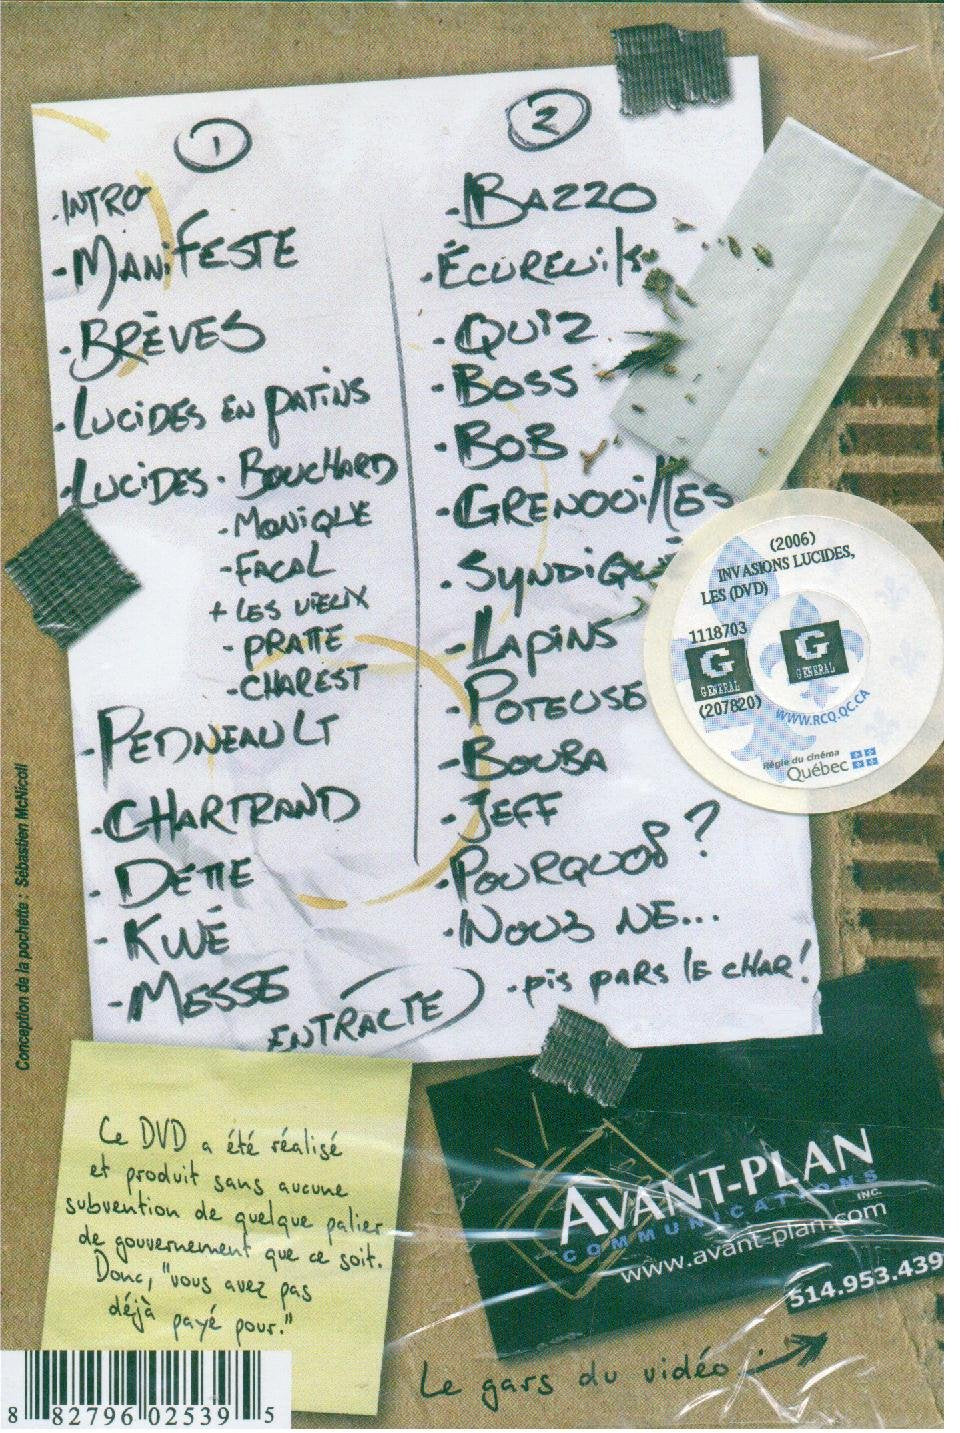 1
. INTRO
- MANIFESTE
. BRÈVES
. LUCIDES EN PATINS
. LUCIDES . BOUCHARD
- MONIQUE
- FACAL
+ LES VIEUX
- PRATTE
- CHAREST
- PEDNEAULT
. CHARTRAND
. DETTE
- KWÉ
- MESSE
ENTRACTE
2
- BAZZO
. ÉCUREUILS
- QUIZ
- BOSS
- BOB
- GRENOUILLES
. SYNDIQUÉ
- LAPINS
- POTEUSE
- BOUBA
- JEFF
. POURQUOS ?
. NOUS NE...
. PIS PARS LE CHAR!
(2006)
INVASIONS LUCIDES,
LES (DVD)
1118703
G
GENERAL
(207820)
G
GENERAL
WWW.RCQ.QC.CA
Régie du cinéma
Québec
Conception de la pochette : Sébastien McNicoll
Ce DVD a été réalisé
et produit sans aucune
subvention de quelque palier
de gouvernement que ce soit.
Donc, "vous avez pas
déjà payé pour."
AVANT-PLAN
COMMUNICATIONS
INC.
www.avant-plan.com
514.953.439
Le gars du vidéo
8 82796 02539 5